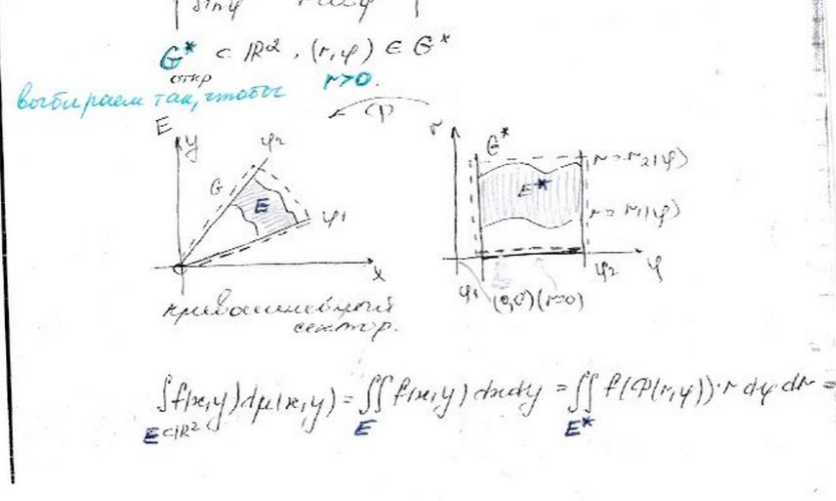 sinφ rcosφ
G* ⊂ ℝ², (r,φ) ∈ G*
откр r>0.
выбираем так, чтобы
Φ
E
y φ₂
G E φ₁
x
криволинейный
сектор.
r G* r=r₂(φ)
E*
r=r₁(φ)
φ₁ (0,0)(r=0) φ₂ φ
∫f(x,y)dμ(x,y) = ∬ f(x,y) dxdy = ∬ f(Φ(r,φ))·r dφ dr =
E⊂ℝ² E E*